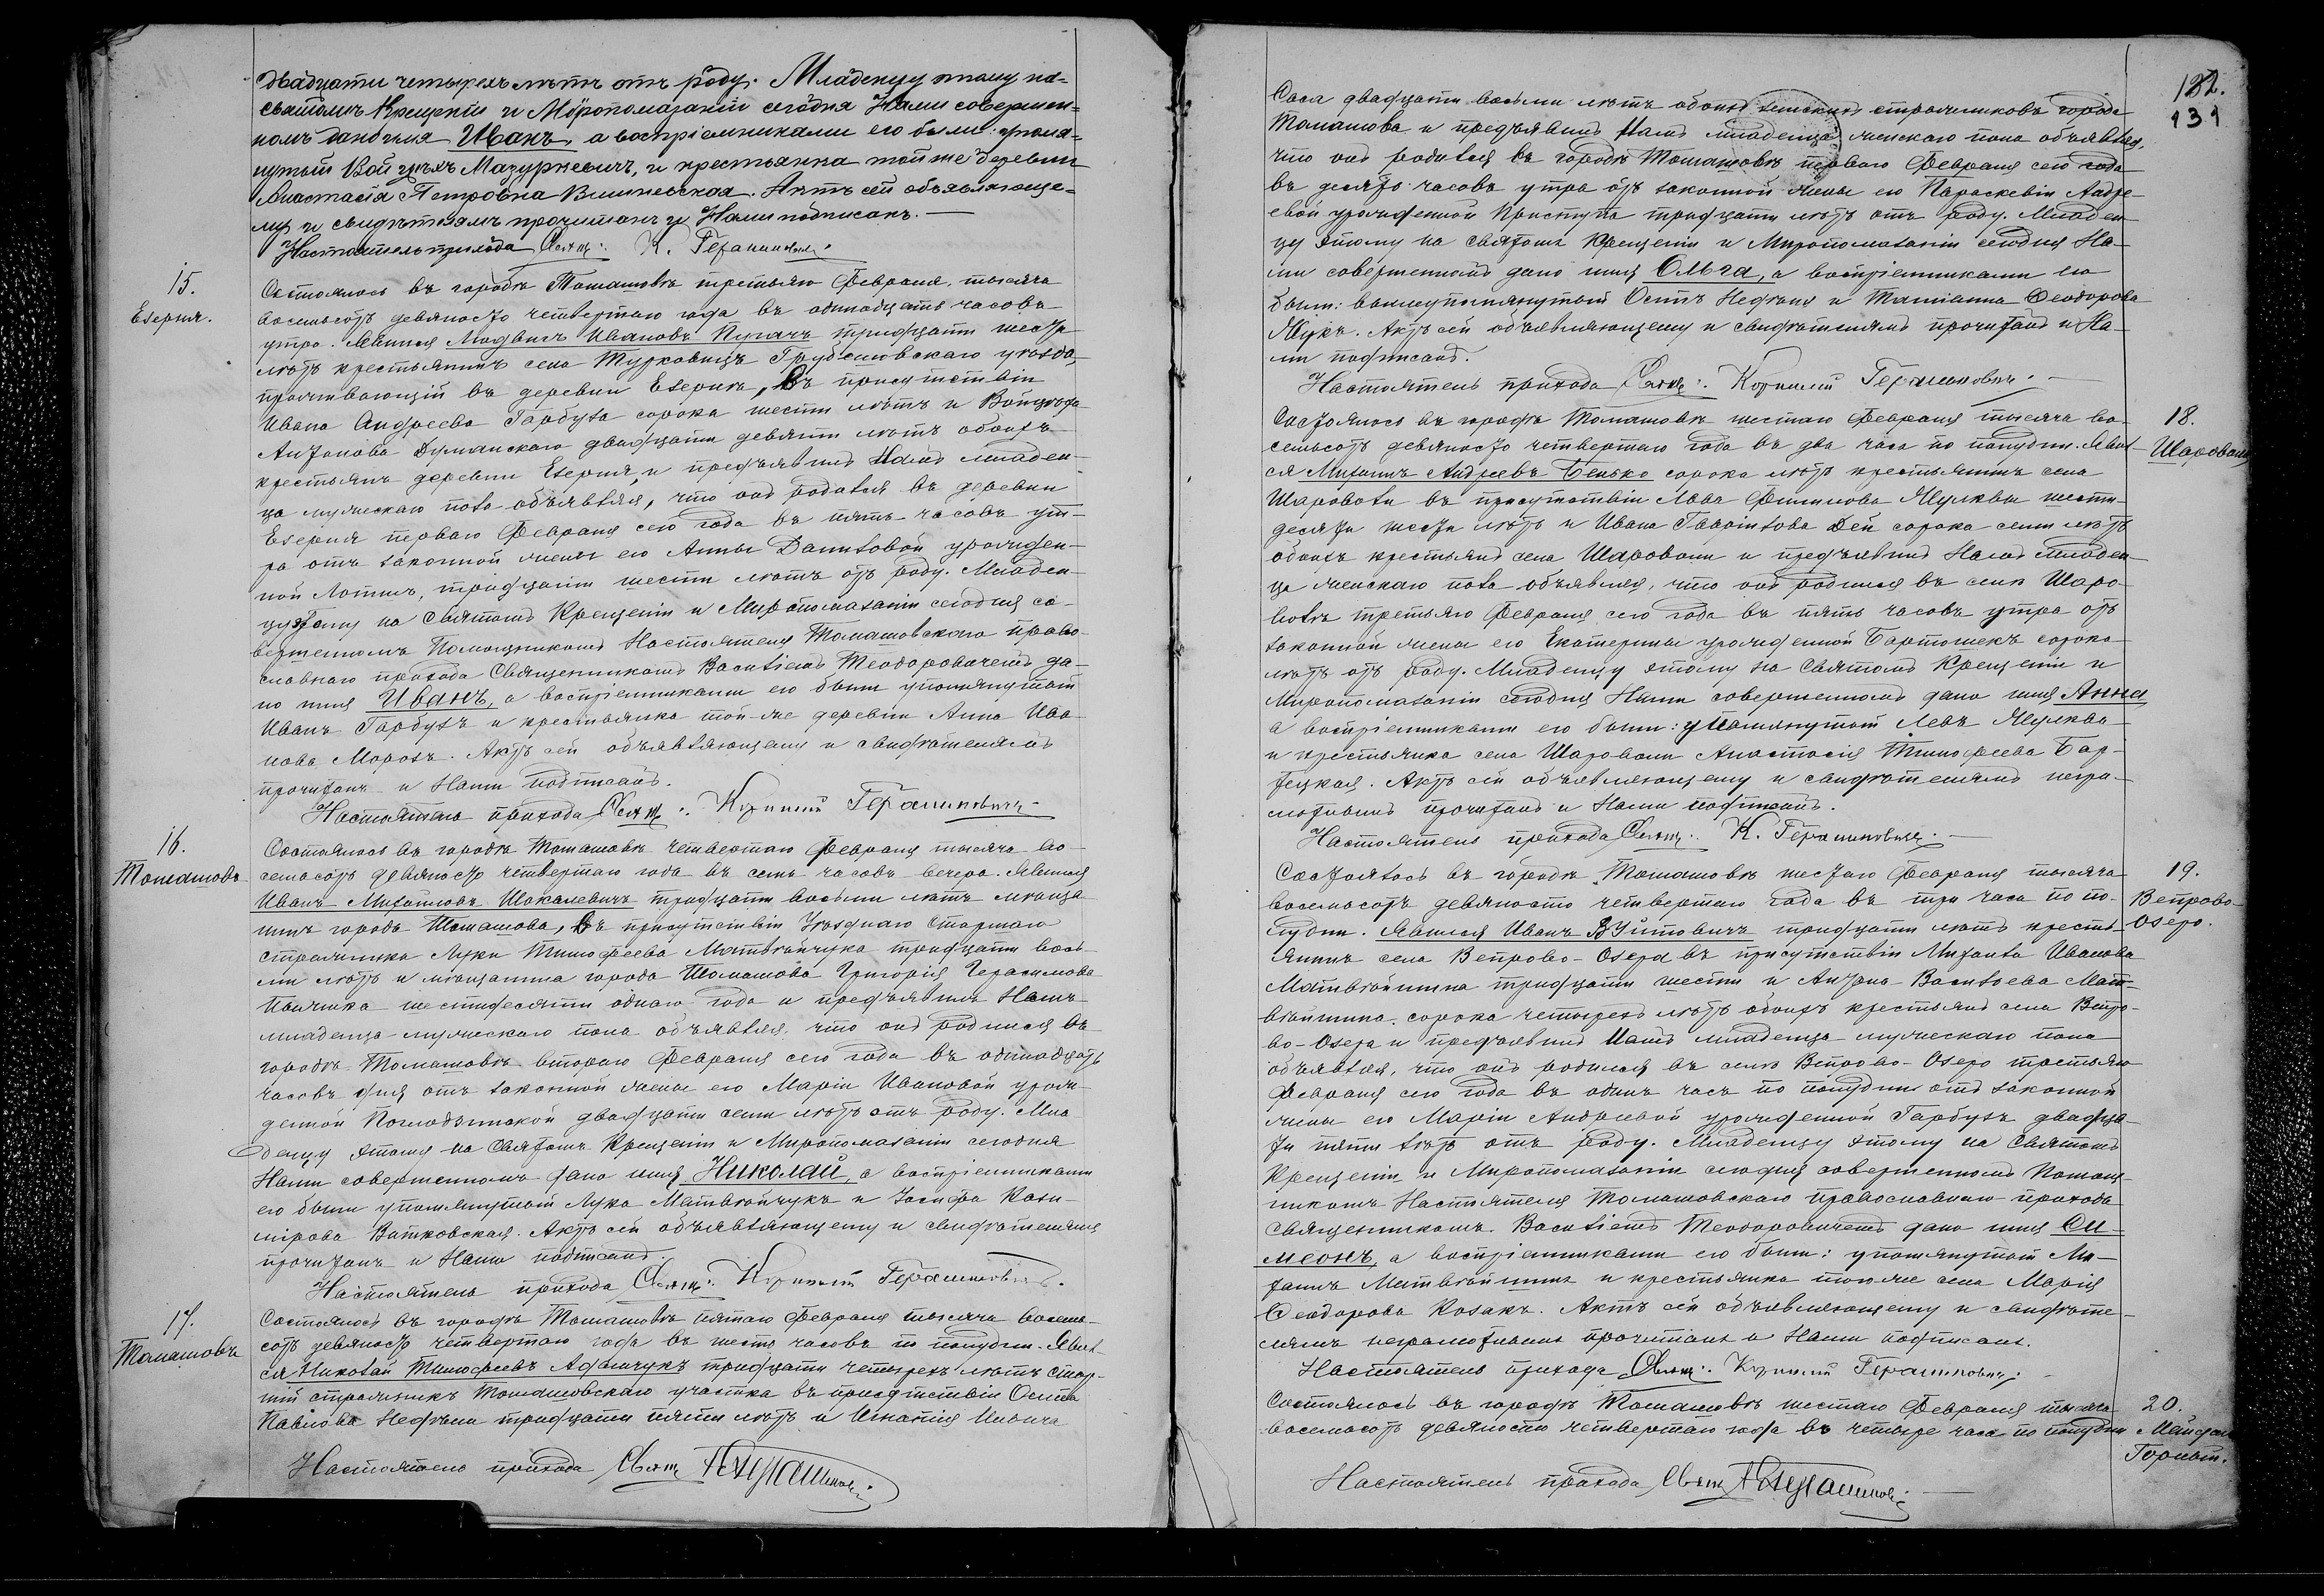 двадцати четырехъ лѣтъ отъ роду. Младенцу этому на
святомъ Крещеніи и Мѵропомазаніи сегодня Нами совершен-
номъ дано имя Иванъ, а воспріемниками его были: упомя-
нутый Войцехъ Мазуркевичъ, и крестьянка той же деревни
Анастасія Петровна Вишневская. Актъ сей объявляюще-
му и свидѣтелямъ прочитанъ и Нами подписанъ.
Настоятель прихода Свящ: К. Герашиновичъ
15.
Езерня.
Состоялось въ городѣ Томашовѣ третьяго Февраля, тысяча
восемьсотъ девяносто четвертаго года въ одинадцать часовъ
утра. Явился Людвигъ Ивановъ Пугачъ тридцати шести
лѣтъ крестьянинъ села Турковицъ Грубешовскаго уѣзда,
проживающій въ деревни Езерня, въ присутствіи
Ивана Андреева Гарбуза сорока шести лѣтъ и Войцѣха
Антонова двадцати девяти лѣтъ обоихъ
крестьянъ деревни Езерня, и предъявилъ Намъ младен-
ца мужескаго пола объявляя, что онъ родился въ деревни
Езерня перваго Февраля сего года въ пять часовъ ут-
ра отъ законной жены его Анны Даниловой урожден-
ной тридцати шести лѣтъ отъ роду. Младен-
цу этому на Святомъ Крещеніи и Миропомазаніи сегодня со-
вершенномъ Помощникомъ Настоятеля Томашовскаго право-
славнаго прихода Священникомъ Василіемъ Теодоровичемъ да-
но имя Иванъ, а воспріемниками его были упомянутый
Иванъ Гарбузъ и крестьянка той-же деревни Анна Ива-
нова Морозъ. Актъ сей объявляющему и свидѣтелямъ
прочитанъ и Нами подписанъ.
Настоятель прихода Свящ: Корнилій Герашиновичъ
16.
Томашовъ
Состоялось въ городѣ Томашовѣ четвертаго Февраля тысяча во-
семьсотъ девяносто четвертаго года въ семь часовъ вечера. Явился
Иванъ Михайловъ Шокалевичъ тридцати восьми лѣтъ мѣща-
нинъ города Томашова, въ присутствіи Уѣзднаго Старшаго
стражника Луки Тимофеева Матвѣйчука тридцати вось-
ми лѣтъ и мѣщанина города Томашова Григорія Герасимова
шестидесяти однаго года и предъявилъ Намъ
младенца мужескаго пола объявляя, что онъ родился въ
городѣ Томашовѣ втораго Февраля сего года въ одинадцать
часовъ дня отъ законной жены его Маріи Ивановой урож-
денной двадцати семи лѣтъ отъ роду. Мла-
денцу этому на Святомъ Крещеніи и Миропомазаніи сегодня
Нами совершенномъ дано имя Николай, а воспріемниками
его были упомянутый Лука Матвѣйчукъ и Іосифа Кази-
мірова Витковская. Актъ сей объявляющему и свидѣтелямъ
прочитанъ и Нами подписанъ.
Настоятель прихода Свящ: Корнилій Герашиновичъ.
17.
Томашовъ
Состоялось въ городѣ Томашовѣ пятаго Февраля тысяча восемь-
сотъ девяносто четвертаго года въ шесть часовъ по полудни. Явил-
ся Николай Тимофеевъ Адамчукъ тридцати четырехъ лѣтъ стар-
шій стражникъ Томашовскаго участка въ присутствіи Осипа
Павлова тридцати пяти лѣтъ и Игнатія Ильича
Настоятель прихода Свящ
182.
131
двадцати восьми лѣтъ обоихъ земскихъ стражниковъ города
Томашова и предъявилъ Намъ младенца женскаго пола объявляя,
что онъ родился въ городѣ Томашовѣ перваго Февраля сего года
въ десять часовъ утра отъ законной жены его Параскевіи Андре-
евой урожденной Приступа тридцати лѣтъ отъ роду. Младен-
цу этому на Святомъ Крещеніи и Миропомазаніи сегодня На-
ми совершенномъ дано имя Ольга, а воспріемниками его
были: вышеупомянутый Осипъ и Татіанна Ѳеодорова
Жукъ. Актъ сей объявляющему и свидѣтелямъ прочитанъ и На-
ми подписанъ.
Настоятель прихода Свящ: Корнилій Герашиновичъ.
18.
Шароволя
Состоялось въ городѣ Томашовѣ шестаго Февраля тысяча во-
семьсотъ девяносто четвертаго года въ два часа по полудни. Явил-
ся Михаилъ Андреевъ Бенько сорока лѣтъ крестьянинъ села
Шароволи въ присутствіи Льва Филипова Жулквы шести-
десяти шести лѣтъ и Ивана Гаврилова Дей сорока семи лѣтъ
обоихъ крестьянъ села Шароволи и предъявилъ Намъ младен-
ца женскаго пола объявляя, что онъ родился въ селѣ Шаро-
волѣ третьяго Февраля сего года въ пять часовъ утра отъ
законной жены его Екатерины урожденной Бартошекъ сорока
лѣтъ отъ роду. Младенцу этому на Святомъ Крещеніи и
Миропомазаніи сегодня Нами совершенномъ дано имя Анна
а воспріемниками его были: упомянутый Левъ Жулква
и крестьянка села Шароволи Анастасія Тимофеева Бар-
тецкая. Актъ сей объявляющему и свидѣтелямъ негра-
мотнымъ прочитанъ и Нами подписанъ.
Настоятель прихода Свящ: К. Герашиновичъ.
19.
Вепрово-
Озеро.
Состоялось въ городѣ Томашовѣ шестаго Февраля тысяча
восемьсотъ девяносто четвертаго года въ три часа по по-
лудни. Явился Иванъ Вуйтовичъ тридцати лѣтъ кресть-
янинъ села Вепрово-Озера въ присутствіи Михаила Иванова
Матвѣйшина тридцати шести и Антона Васильева Мат-
вѣйшина сорока четырехъ лѣтъ обоихъ крестьянъ села Вепро-
во-Озера и предъявилъ Намъ младенца мужескаго пола
объявляя, что онъ родился въ селѣ Вепрово-Озеро третьяго
Февраля сего года въ одинъ часъ по полудни отъ законной
жены его Маріи Андреевой урожденной Гарбузъ двадца-
ти пяти лѣтъ отъ роду. Младенцу этому на Святомъ
Крещеніи и Миропомазаніи сегодня совершенномъ Помощ-
никомъ Настоятеля Томашовскаго православнаго прихода
Священникомъ Василіемъ Теодоровичемъ дано имя Си-
меонъ, а воспріемниками его были: упомянутый Ми-
хаилъ Матвѣйшинъ и крестьянка того же села Марія
Ѳеодорова Козакъ. Актъ сей объявляющему и свидѣте-
лямъ неграмотнымъ прочитанъ и Нами подписанъ.
Настоятель прихода Свящ: Корнилій Герашиновичъ.
20.
Майдан
Горныт.
Состоялось въ городѣ Томашовѣ шестаго Февраля тысяча
восемьсотъ девяносто четвертаго года въ четыре часа по полудни
Настоятель прихода Свящ